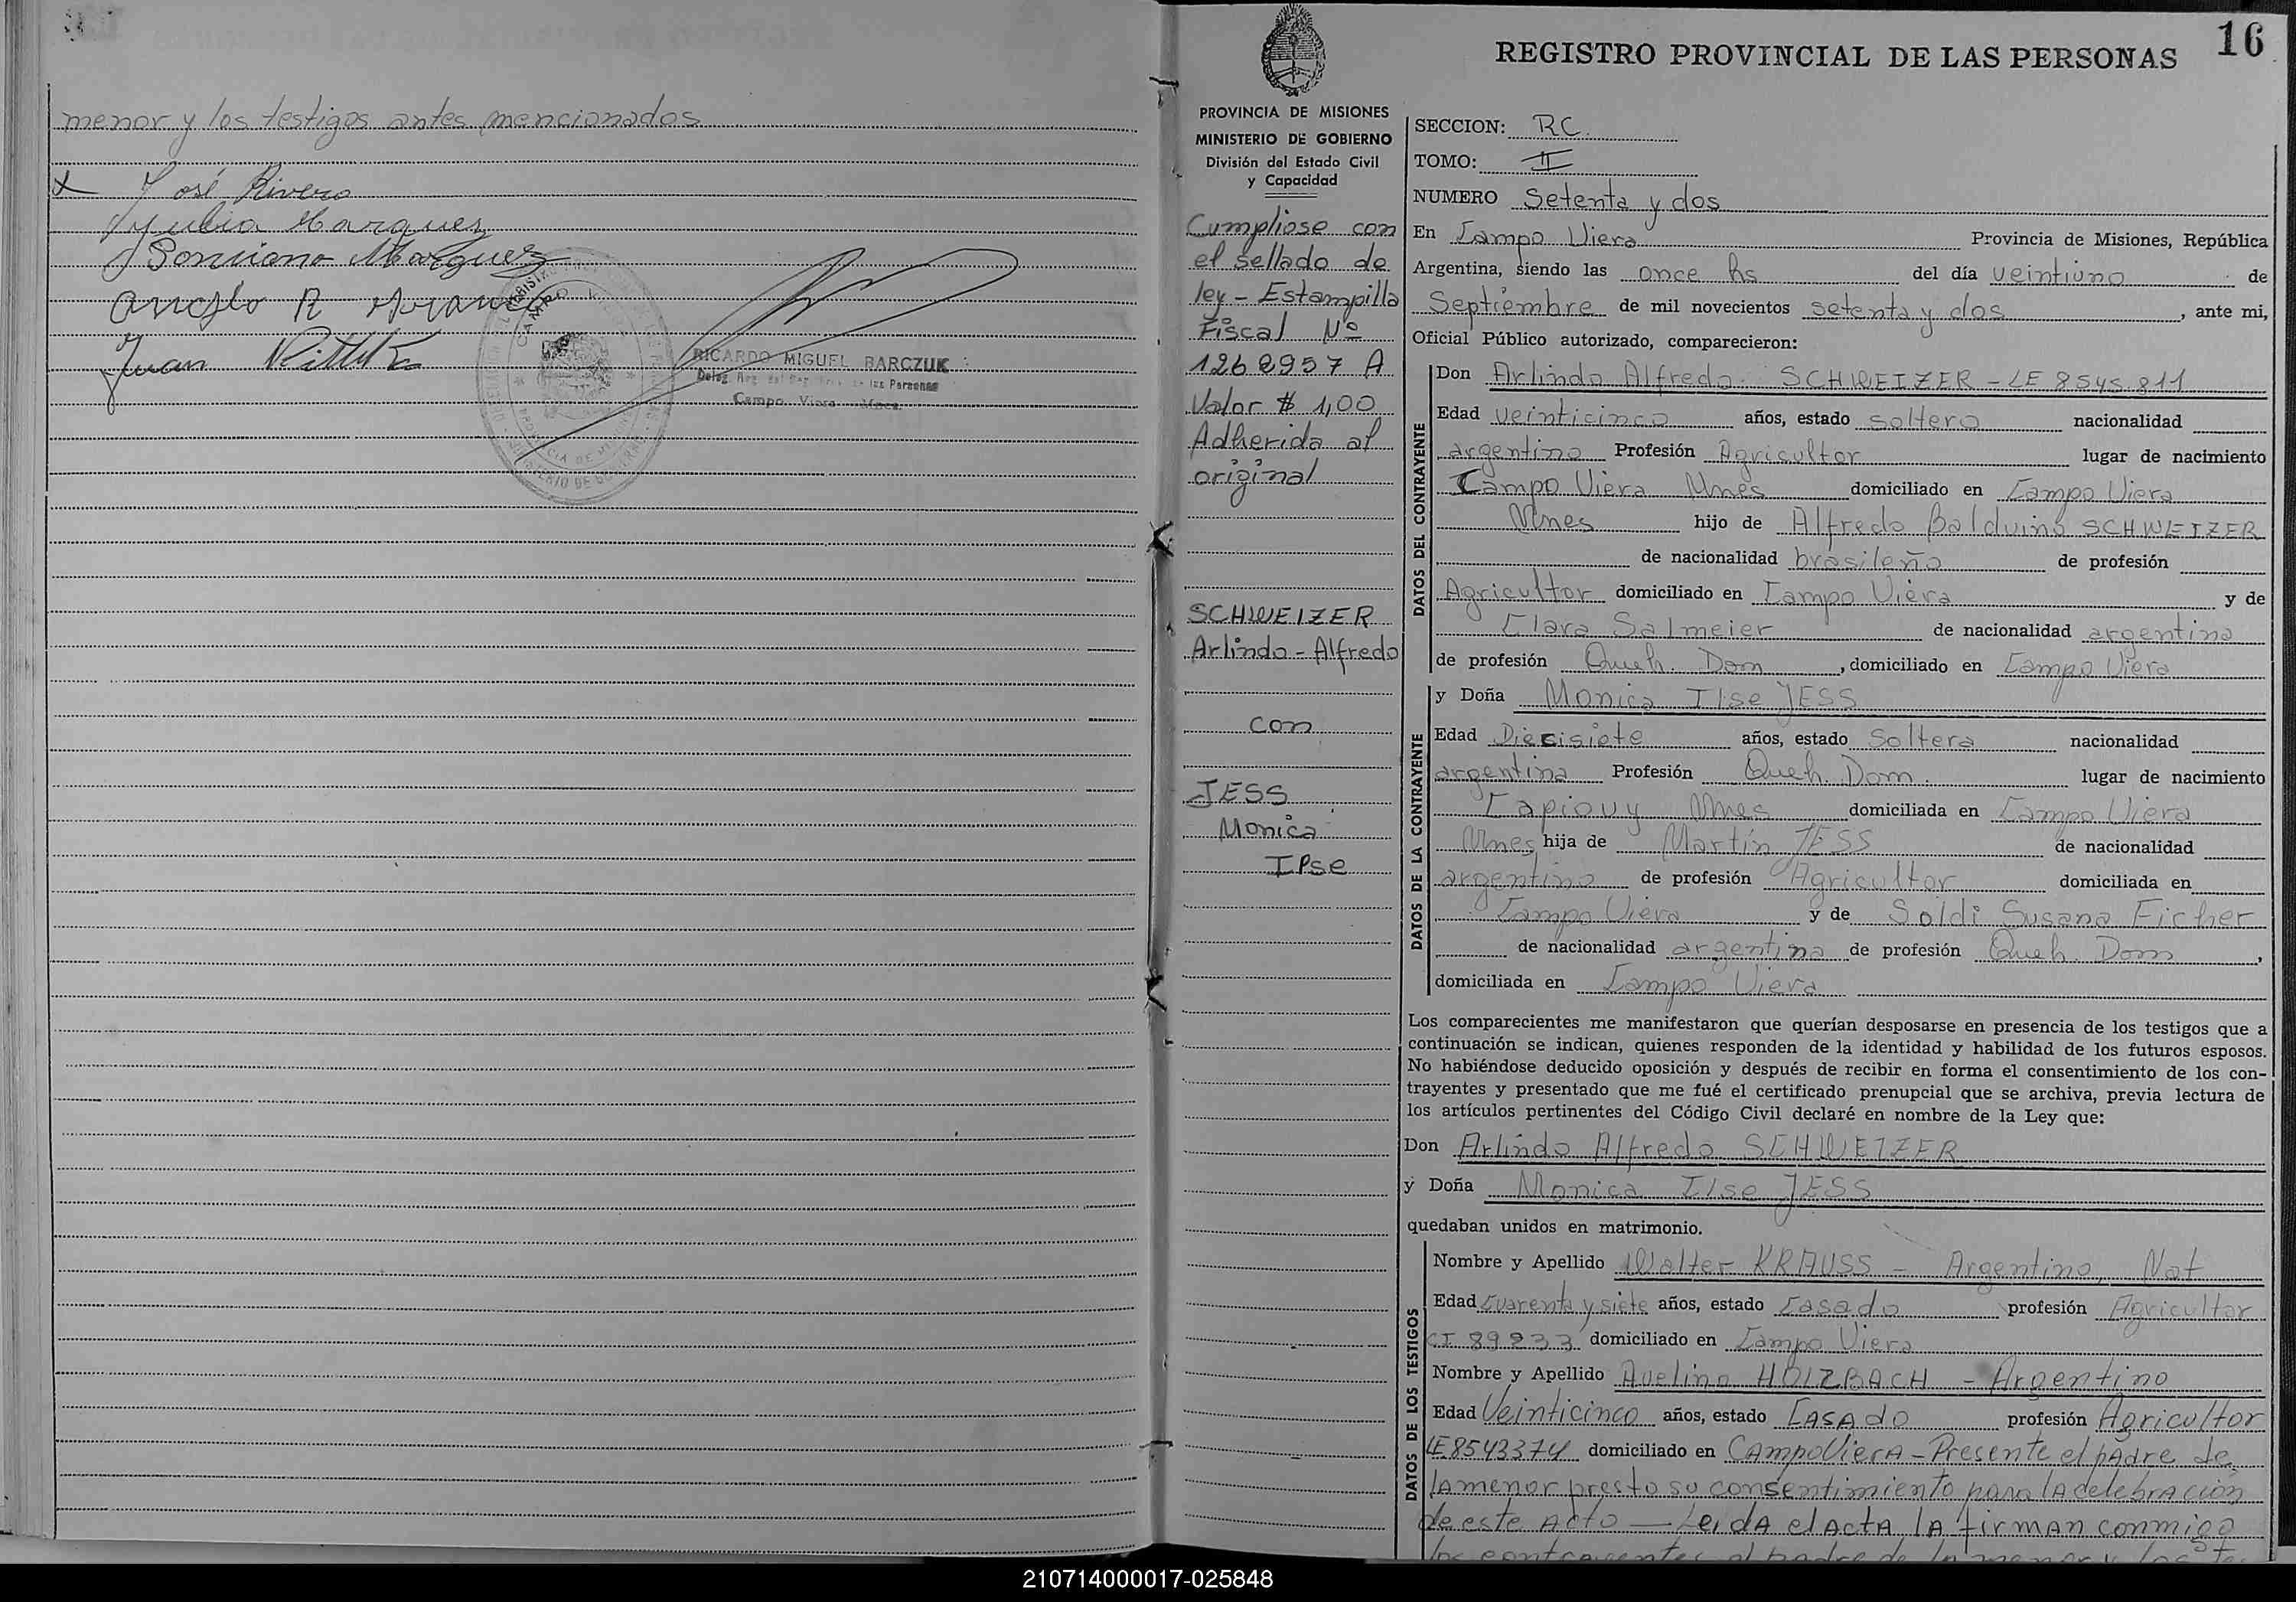 menor y los testigos antes mencionados
X José Rivero
Julia Marquez
Ponciano Marquez
Juan
RICARDO MIGUEL BARCZUK
Campo Viera
16
REGISTRO PROVINCIAL DE LAS PERSONAS
PROVINCIA DE MISIONES
MINISTERIO DE GOBIERNO
División del Estado Civil
y Capacidad
Cumpliose con
el sellado de
ley - Estampilla
Fiscal Nº
1262957 A
Valor $ 1,00
Adherida al
original
SCHWEIZER
Arlindo - Alfredo
con
JESS
Monica
Ilse
SECCION: RC.
TOMO: II
NUMERO Setenta y dos
En Campo Viera Provincia de Misiones, República
Argentina, siendo las once hs del día veintiuno de
Septiembre de mil novecientos setenta y dos, ante mi,
Oficial Público autorizado, comparecieron:
DATOS DEL CONTRAYENTE
Don Arlindo Alfredo SCHWEIZER - LE 8545.811
Edad veinticinco años, estado soltero nacionalidad
argentino Profesión Agricultor lugar de nacimiento
Campo Viera Mnes domiciliado en Campo Viera
Mnes hijo de Alfredo Balduino SCHWEIZER
de nacionalidad brasileña de profesión
Agricultor domiciliado en Campo Viera y de
Clara Salmeier de nacionalidad argentina
de profesión Queh. Dom, domiciliado en Campo Viera
DATOS DE LA CONTRAYENTE
y Doña Monica Ilse JESS
Edad Diecisiete años, estado Soltera nacionalidad
argentina Profesión Queh. Dom. lugar de nacimiento
Capiovy Mnes domiciliada en Campo Viera
Mnes hija de Martin JESS de nacionalidad
argentino de profesión Agricultor domiciliada en
Campo Viera y de Soldi Susana Ficher
de nacionalidad argentina de profesión Queh. Dom,
domiciliada en Campo Viera
Los comparecientes me manifestaron que querían desposarse en presencia de los testigos que a
continuación se indican, quienes responden de la identidad y habilidad de los futuros esposos.
No habiéndose deducido oposición y después de recibir en forma el consentimiento de los con-
trayentes y presentado que me fué el certificado prenupcial que se archiva, previa lectura de
los artículos pertinentes del Código Civil declaré en nombre de la Ley que:
Don Arlindo Alfredo SCHWEIZER
y Doña Monica Ilse JESS
quedaban unidos en matrimonio.
DATOS DE LOS TESTIGOS
Nombre y Apellido Walter KRAUSS - Argentino, Nat
Edad Cuarenta y siete años, estado Casado profesión Agricultor
CI 89233 domiciliado en Campo Viera
Nombre y Apellido Avelino HOLZBACH - Argentino
Edad Veinticinco años, estado CASAdo profesión Agricultor
LE 8543374 domiciliado en CAmpo VierA - Presente el pAdre de
lA menor presto su consentimiento parA lA celebrAción
de este Acto — LeidA el ActA lA firmAn conmigo
los contrayentes el padre de la menor y los
210714000017-025848